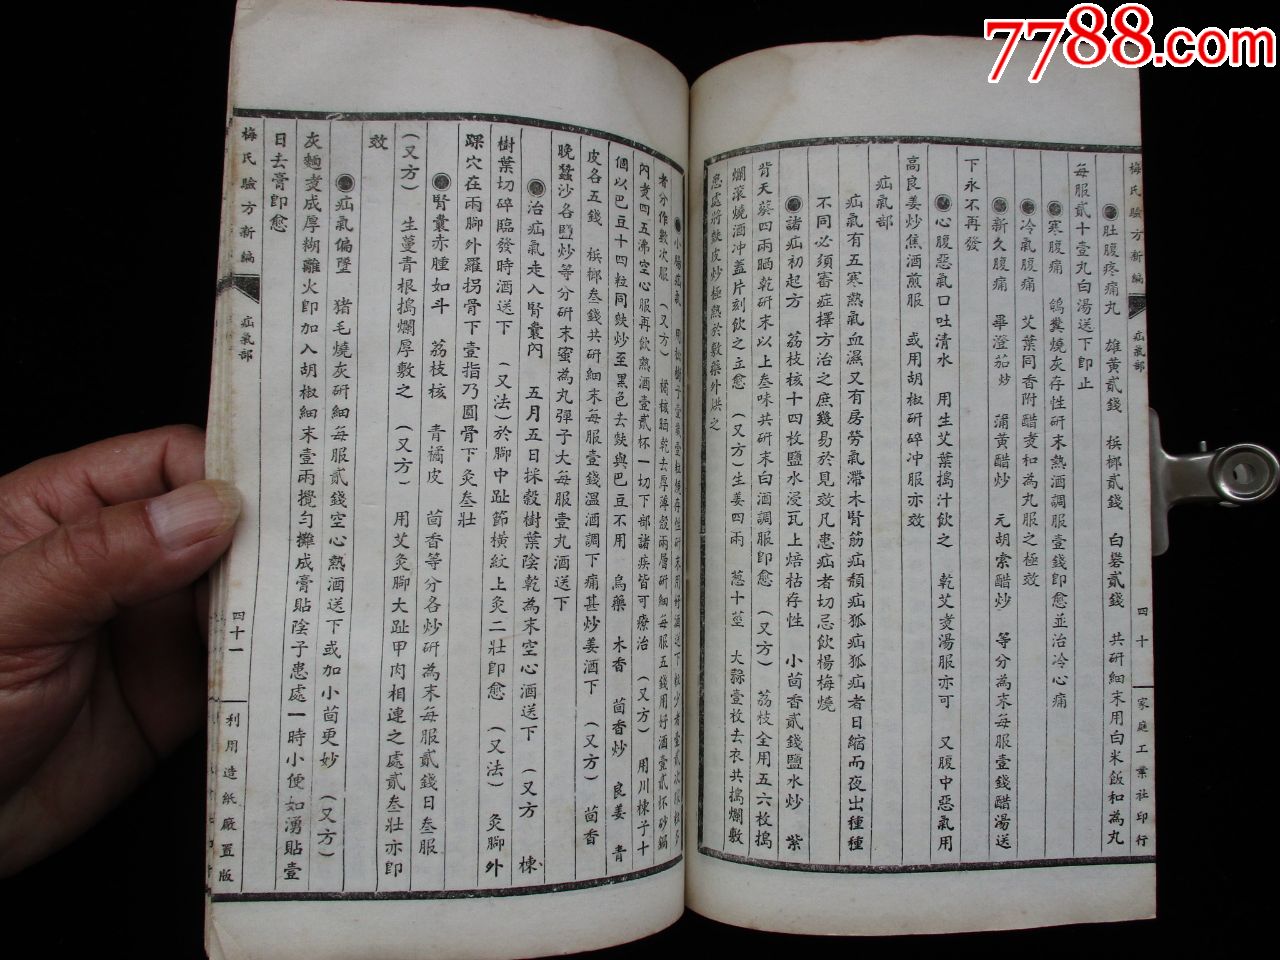 7788.com
梅氏驗方新編 疝氣部 四十 家庭工業社印行
●肚腹疼痛丸 雄黃貳錢 梹榔貳錢 白礬貳錢 共研細末用白米飯和為丸
每服貳十壹丸白湯送下即止
●寒腹痛 鴿糞燒灰存性研末熱酒調服壹錢即愈並治冷心痛
●冷氣腹痛 艾葉同香附醋煑和為丸服之極效
●新久腹痛 畢澄茄炒 蒲黃醋炒 元胡索醋炒 等分為末每服壹錢醋湯送
下永不再發
●心腹惡氣口吐清水 用生艾葉搗汁飲之 乾艾煑湯服亦可 又腹中惡氣用
高良姜炒焦酒煎服 或用胡椒研碎冲服亦效
疝氣部
疝氣有五寒熱氣血濕又有房勞氣滯木腎筋疝頹疝狐疝狐疝者日縮而夜出種種
不同必須審症擇方治之庶幾易於見效凡患疝者切忌飲楊梅燒
●諸疝初起方 荔枝核十四枚鹽水浸瓦上焙枯存性 小茴香貳錢鹽水炒 紫
背天葵四兩晒乾研末以上叁味共研末白酒調服即愈 (又方) 荔枝全用五六枚搗
爛滾燒酒冲蓋片刻飲之立愈 (又方)生姜四兩 葱十莖 大蒜壹枚去衣共搗爛敷
患處將麩皮炒極熱於敷藥外烘之
者分作數次服 (又方) 橘核晒乾去厚薄殼兩層研細每服五錢用好酒壹貳杯砂鍋
內煑四五沸空心服再飲熱酒壹貳杯一切下部諸疾皆可療治 (又方) 用川楝子十
個以巴豆十四粒同麩炒至黑色去麩與巴豆不用 烏藥 木香 茴香炒 良姜 青
皮各五錢 梹榔叁錢共研細末每服壹錢溫酒調下痛甚炒姜酒下 (又方) 茴香
晚蠶沙各鹽炒等分研末蜜為丸彈子大每服壹丸酒送下
●治疝氣走入腎囊內 五月五日採穀樹葉陰乾為末空心酒送下 (又方 楝
樹葉切碎臨發時酒送下 (又法)於腳中趾節橫紋上灸二壯即愈 (又法) 灸腳外
踝穴在兩腳外羅拐骨下壹指乃圓骨下灸叁壯
●腎囊赤腫如斗 荔枝核 青橘皮 茴香等分各炒研為末每服貳錢日叁服
(又方) 生薑青根搗爛厚敷之 (又方) 用艾灸腳大趾甲肉相連之處貳叁壯亦即
效
●疝氣偏墜 猪毛燒灰研細每服貳錢空心熱酒送下或加小茴更妙 (又方)
灰麵煑成厚糊離火即加入胡椒細末壹兩攪勻攤成膏貼陰子患處一時小便如湧貼壹
日去膏即愈
梅氏驗方新編 疝氣部 四十一 利用造紙廠置版